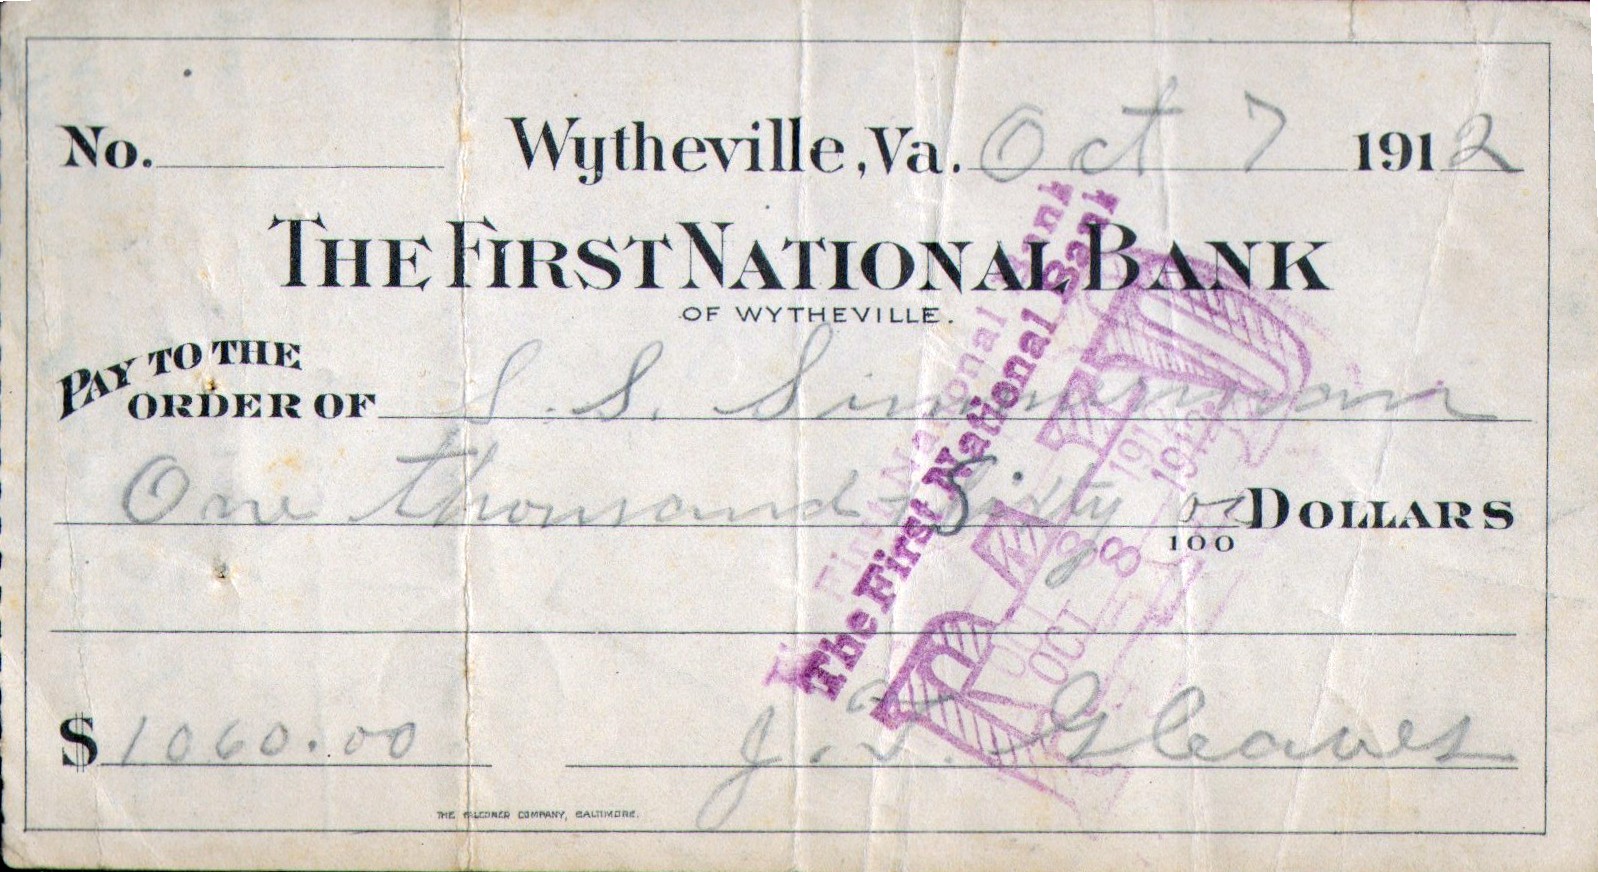 No. Wytheville, Va. Oct 7 1912
THE FIRST NATIONAL BANK
OF WYTHEVILLE.
PAY TO THE
ORDER OF S. S. Simmerman
One thousand Sixty 00 DOLLARS
100
$ 1060.00 J. T. Gleaves
THE FALCONER COMPANY, BALTIMORE.
The First National Bank
First National Bank
PAID
OCT 8 1912
OCT 8 1912